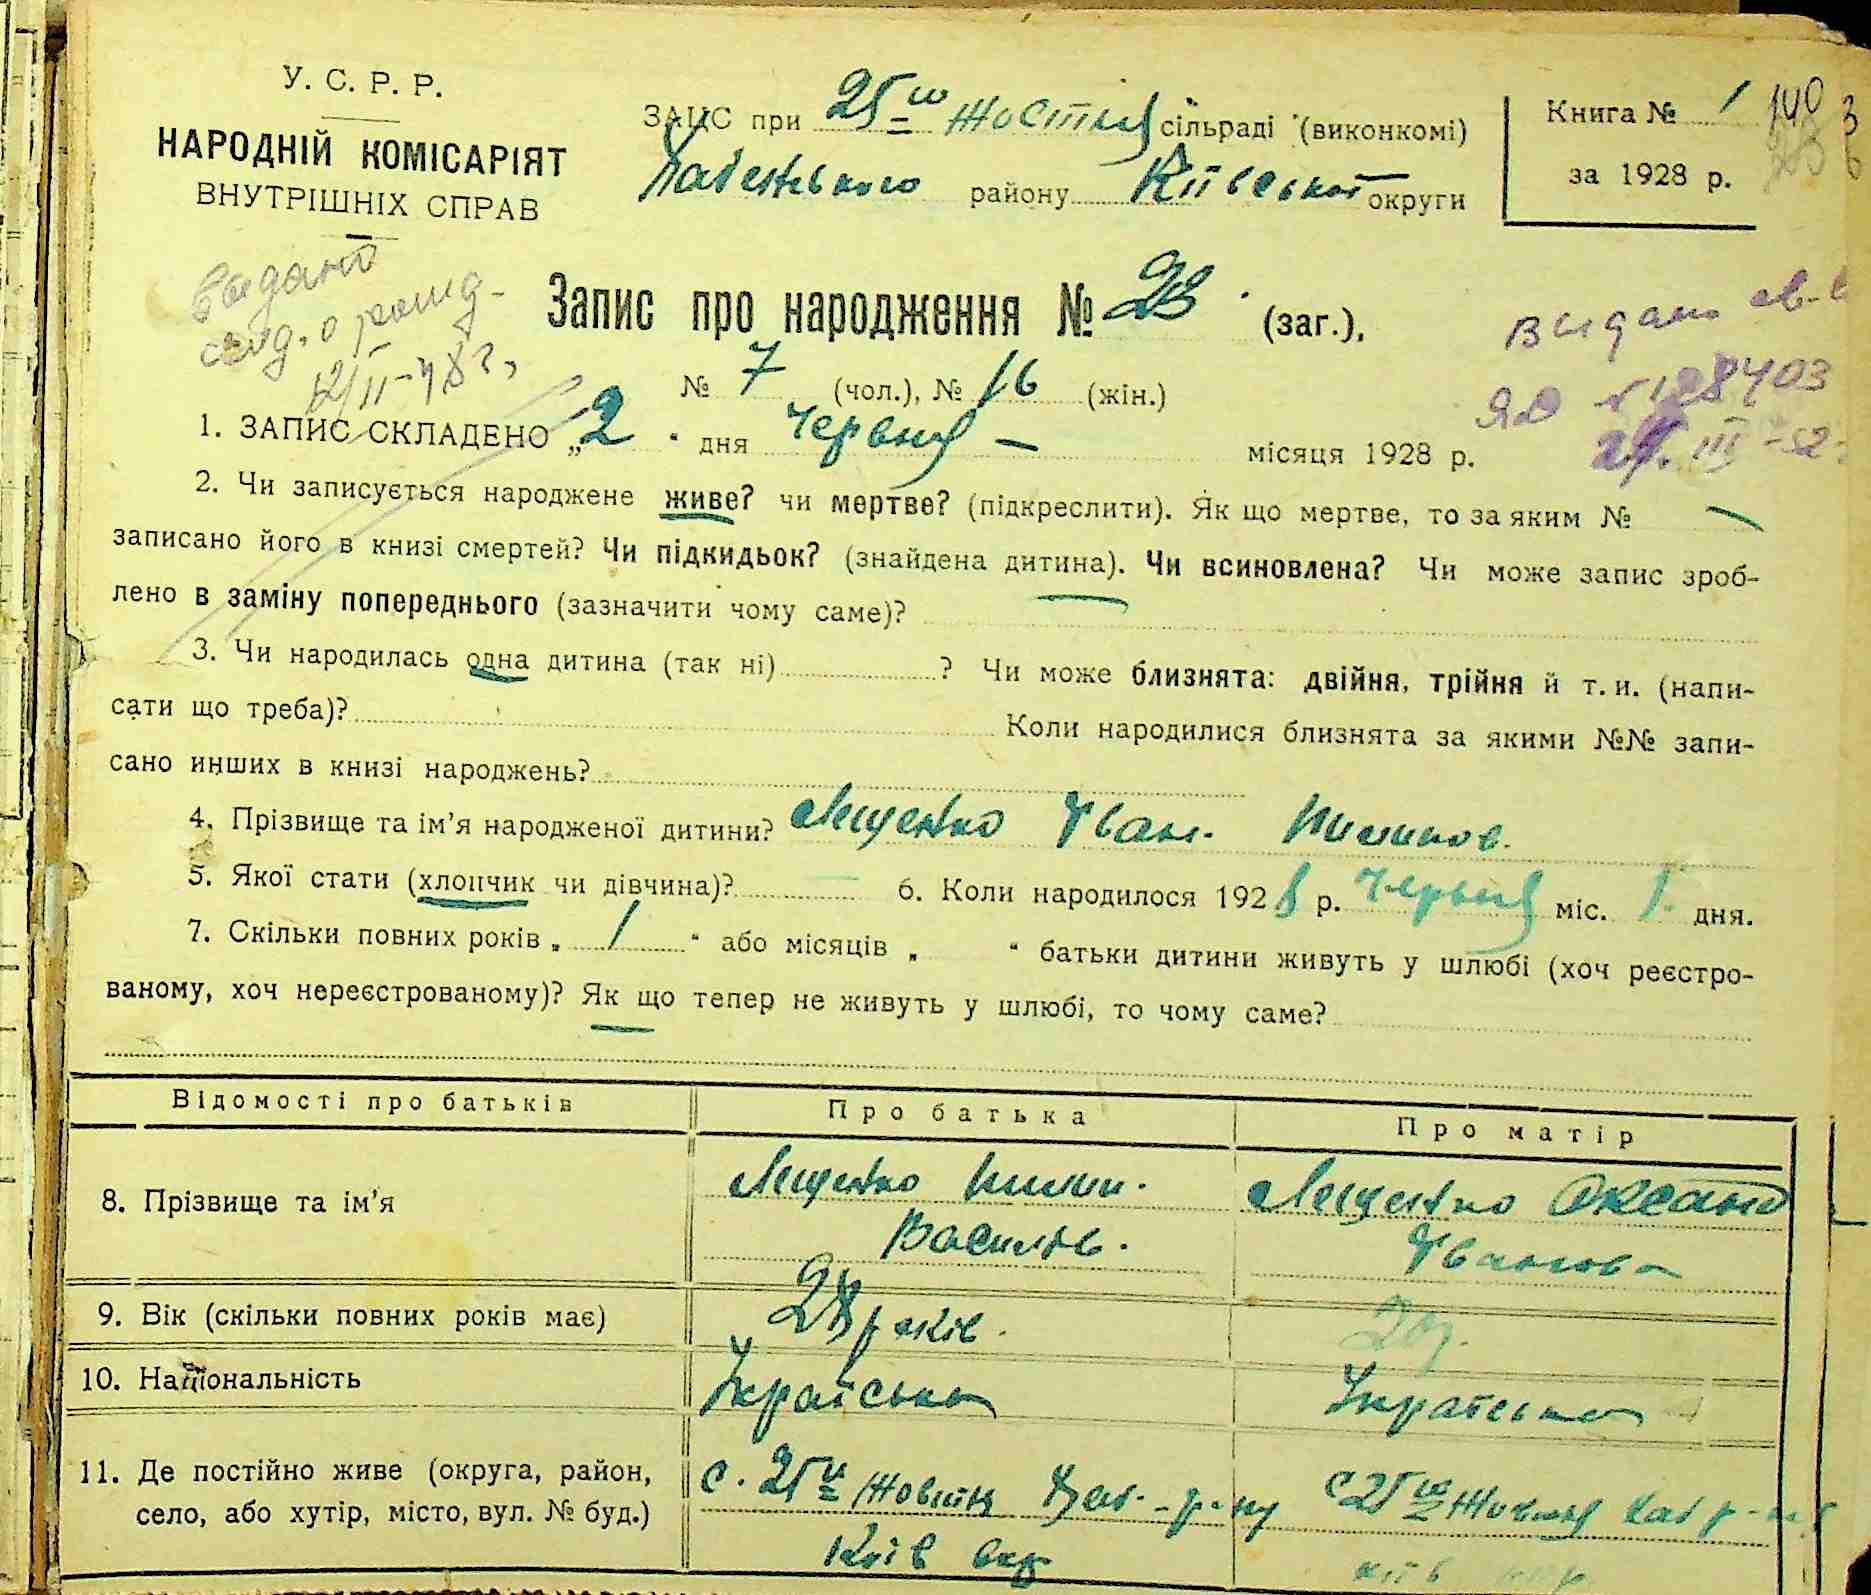 У. С. Р. Р.
НАРОДНІЙ КОМІСАРІЯТ
ВНУТРІШНІХ СПРАВ
ЗАЦС при 25го Жовтня сільраді (виконкомі)
району Київської округи
Книга № 1
за 1928 р.
140
Видано
свид. о рожд.
12/II-48 г.
Запис про народження № 23 (заг.),
№ 7 (чол.), № 16 (жін.)
Видано св-во
ЯД № 128403
III-52
1. ЗАПИС СКЛАДЕНО „2" дня Червня – місяця 1928 р.
2. Чи записується народжене живе? чи мертве? (підкреслити). Як що мертве, то за яким № —
записано його в книзі смертей? Чи підкидьок? (знайдена дитина). Чи всиновлена? Чи може запис зроб-
лено в заміну попереднього (зазначити чому саме)? —
3. Чи народилась одна дитина (так ні)? Чи може близнята: двійня, трійня й т. и. (напи-
сати що треба)? Коли народилися близнята за якими №№ запи-
сано инших в книзі народжень?
4. Прізвище та ім'я народженої дитини? Лещенко Іван. Пилипов.
5. Якої стати (хлопчик чи дівчина)? — 6. Коли народилося 1928 р. Червня міс. 1. дня.
7. Скільки повних років „ 1 " або місяців „ " батьки дитини живуть у шлюбі (хоч реєстро-
ваному, хоч нереєстрованому)? Як що тепер не живуть у шлюбі, то чому саме?
—
Відомості про батьків Про батька Про матір
8. Прізвище та ім'я Лещенко Пилип. Лещенко Оксана
Василів. Іванова
9. Вік (скільки повних років має) 28 років. 20р.
10. Національність Українська Українська
11. Де постійно живе (округа, район, с. 25го Жовтня р-ну с 25го Жовтня
село, або хутір, місто, вул. № буд.) Київ окр Київ окр